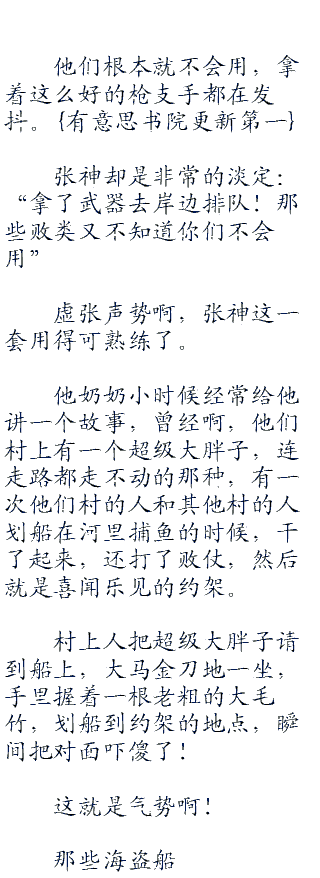 他们根本就不会用，拿
着这么好的枪支手都在发
抖。{有意思书院更新第一}
张神却是非常的淡定：
“拿了武器去岸边排队！那
些败类又不知道你们不会
用”
虚张声势啊，张神这一
套用得可熟练了。
他奶奶小时候经常给他
讲一个故事，曾经啊，他们
村上有一个超级大胖子，连
走路都走不动的那种，有一
次他们村的人和其他村的人
划船在河里捕鱼的时候，干
了起来，还打了败仗，然后
就是喜闻乐见的约架。
村上人把超级大胖子请
到船上，大马金刀地一坐，
手里握着一根老粗的大毛
竹，划船到约架的地点，瞬
间把对面吓傻了！
这就是气势啊！
那些海盗船